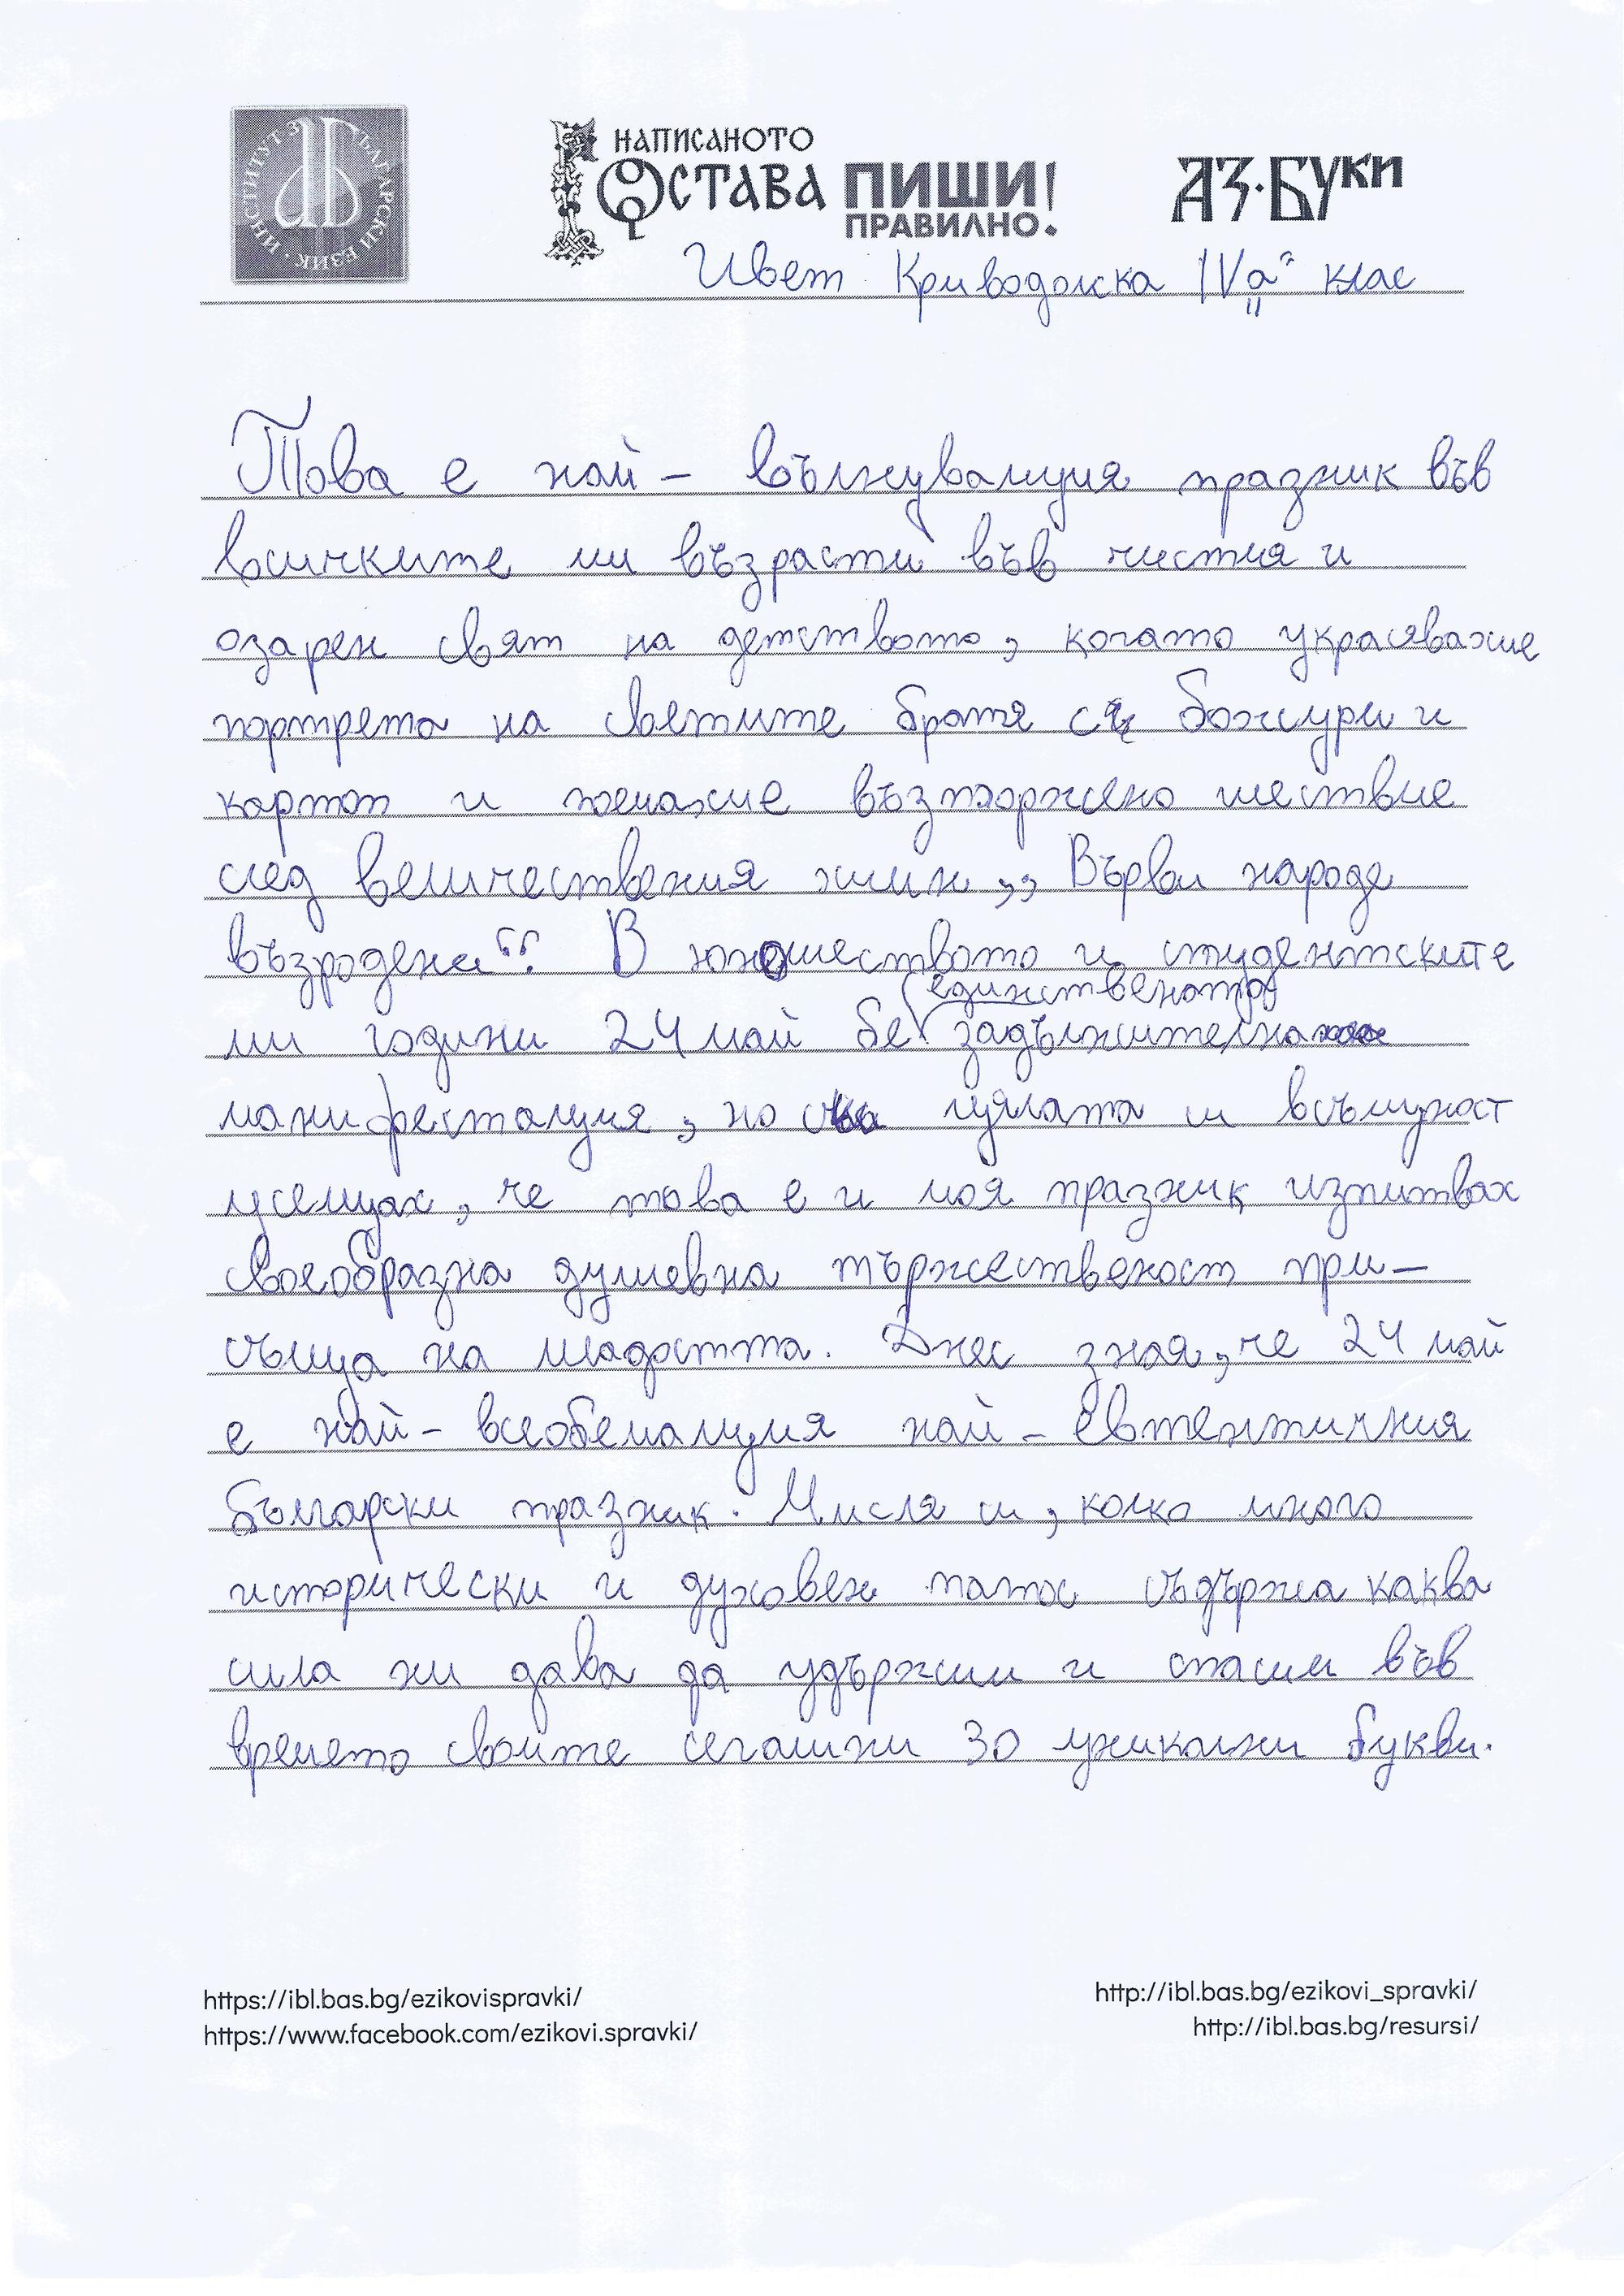 ИНСТИТУТ ЗА БЪЛГАРСКИ ЕЗИК
НАПИСАНОТО
ОСТАВА ПИШИ!
ПРАВИЛНО.
АЗ·БУКИ
Ивет Криводолска IV„а“ клас
Това е най- вълнуващия празник във
всичките ми възрасти във чистия и
озарен свят на детството, когато украсявахме
портрета на светите братя с божури и
картон и поемахме възторжено шествие
след величествения химн ,, Върви народе
възродени“. В юношеството и студентските
единствената
ми години 24 май бе задължителна
манифестация, но с цялата си всъщност
усещах, че това е и моя празник изпитвах
своеобразна душевна тържественост при-
съща на младостта. Днес зная, че 24 май
е най- всеобемащия най- евтентичния
български празник. Мисля си, колко много
исторически и духовен патос съдържа каква
сила ни дава да удържим и спасим във
времето своите сегашни 30 уникални букви.
https://ibl.bas.bg/ezikovispravki/
https://www.facebook.com/ezikovi.spravki/
http://ibl.bas.bg/ezikovi_spravki/
http://ibl.bas.bg/resursi/